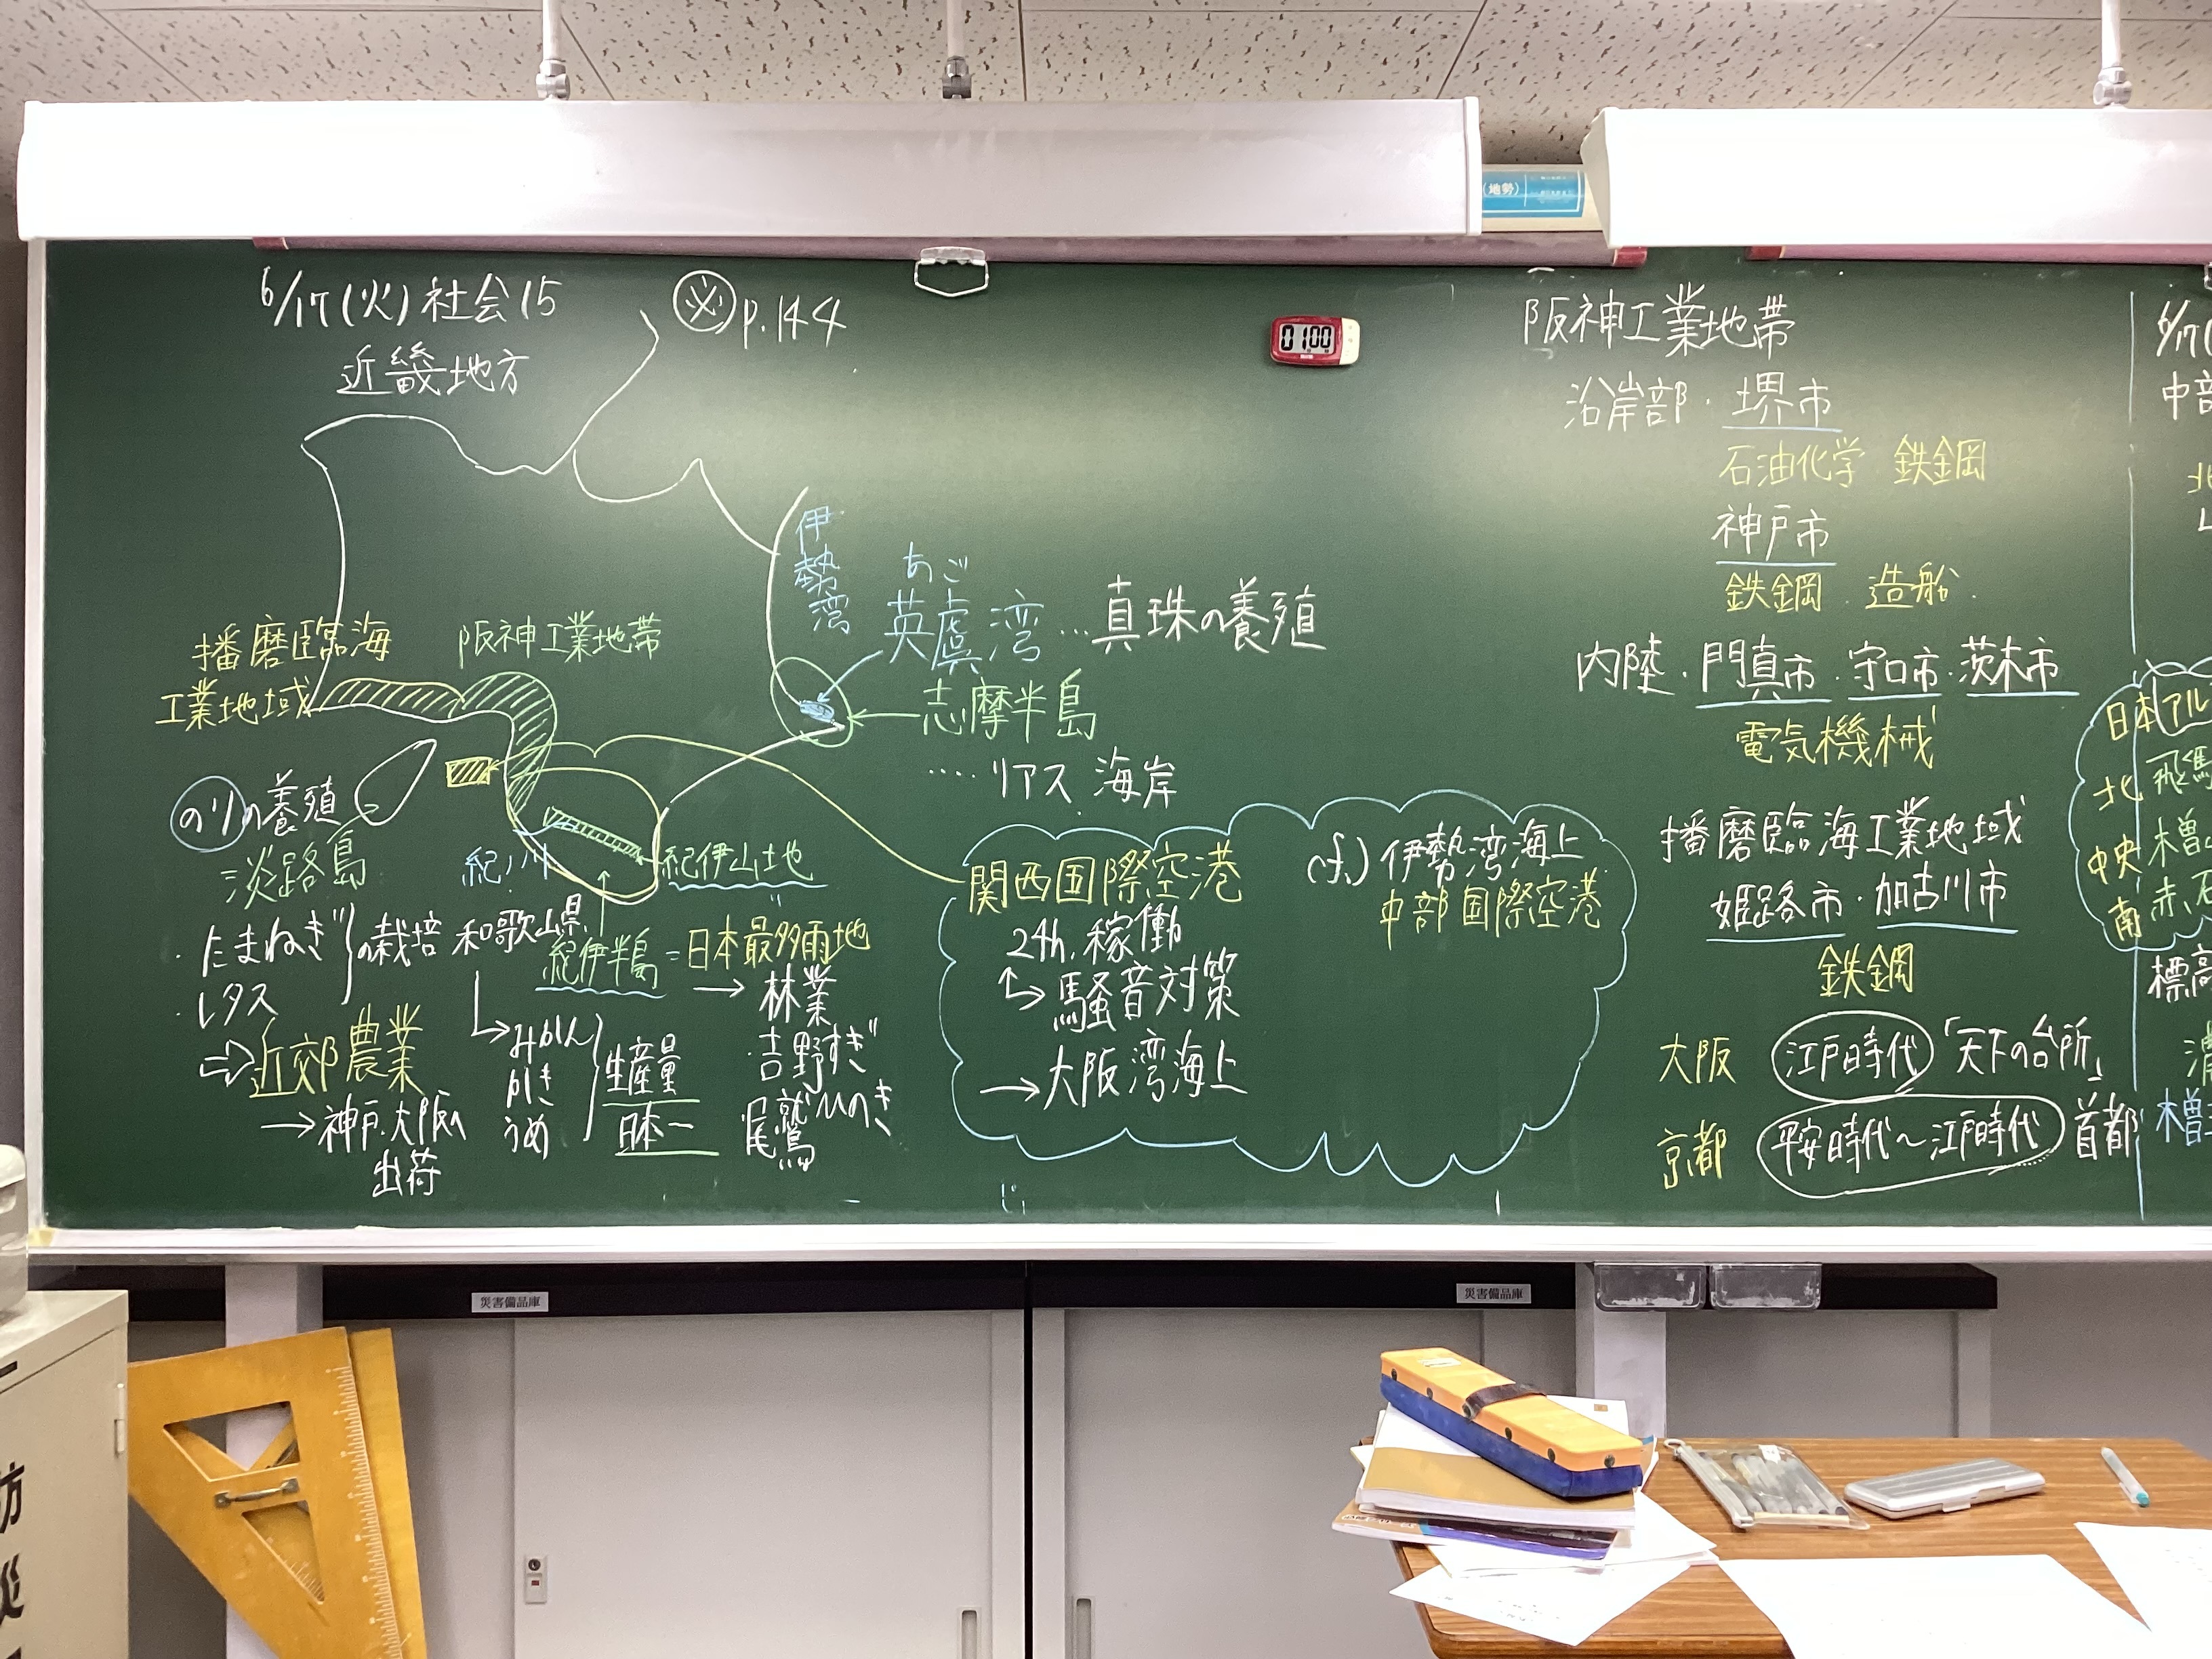 (地勢)
6/17(火)社会15
㊫p.144
近畿地方
伊勢湾
あご
英虞湾…真珠の養殖
志摩半島
‥‥リアス海岸
播磨臨海
工業地域
阪神工業地帯
のりの養殖
淡路島
・たまねぎ
・レタス
の栽培
⇨近郊農業
→神戸・大阪へ
出荷
紀ノ川
紀伊山地
和歌山県
紀伊半島=日本最多雨地
→林業
吉野すぎ
尾鷲ひのき
みかん
かき
うめ
生産量
日本一
関西国際空港
24h.稼働
騒音対策
→大阪湾海上
(cf.)伊勢湾海上
中部国際空港
01 00
阪神工業地帯
沿岸部・堺市
石油化学 鉄鋼
神戸市
鉄鋼・造船
内陸・門真市・守口市・茨木市
電気機械
播磨臨海工業地域
姫路市・加古川市
鉄鋼
大阪 江戸時代「天下の台所」
京都 平安時代〜江戸時代 首都
6/17(
中部
北
日本アル
北 飛騨
中央 木曽
南 赤石
標高
木曽
災害備品庫
災害備品庫
防
災